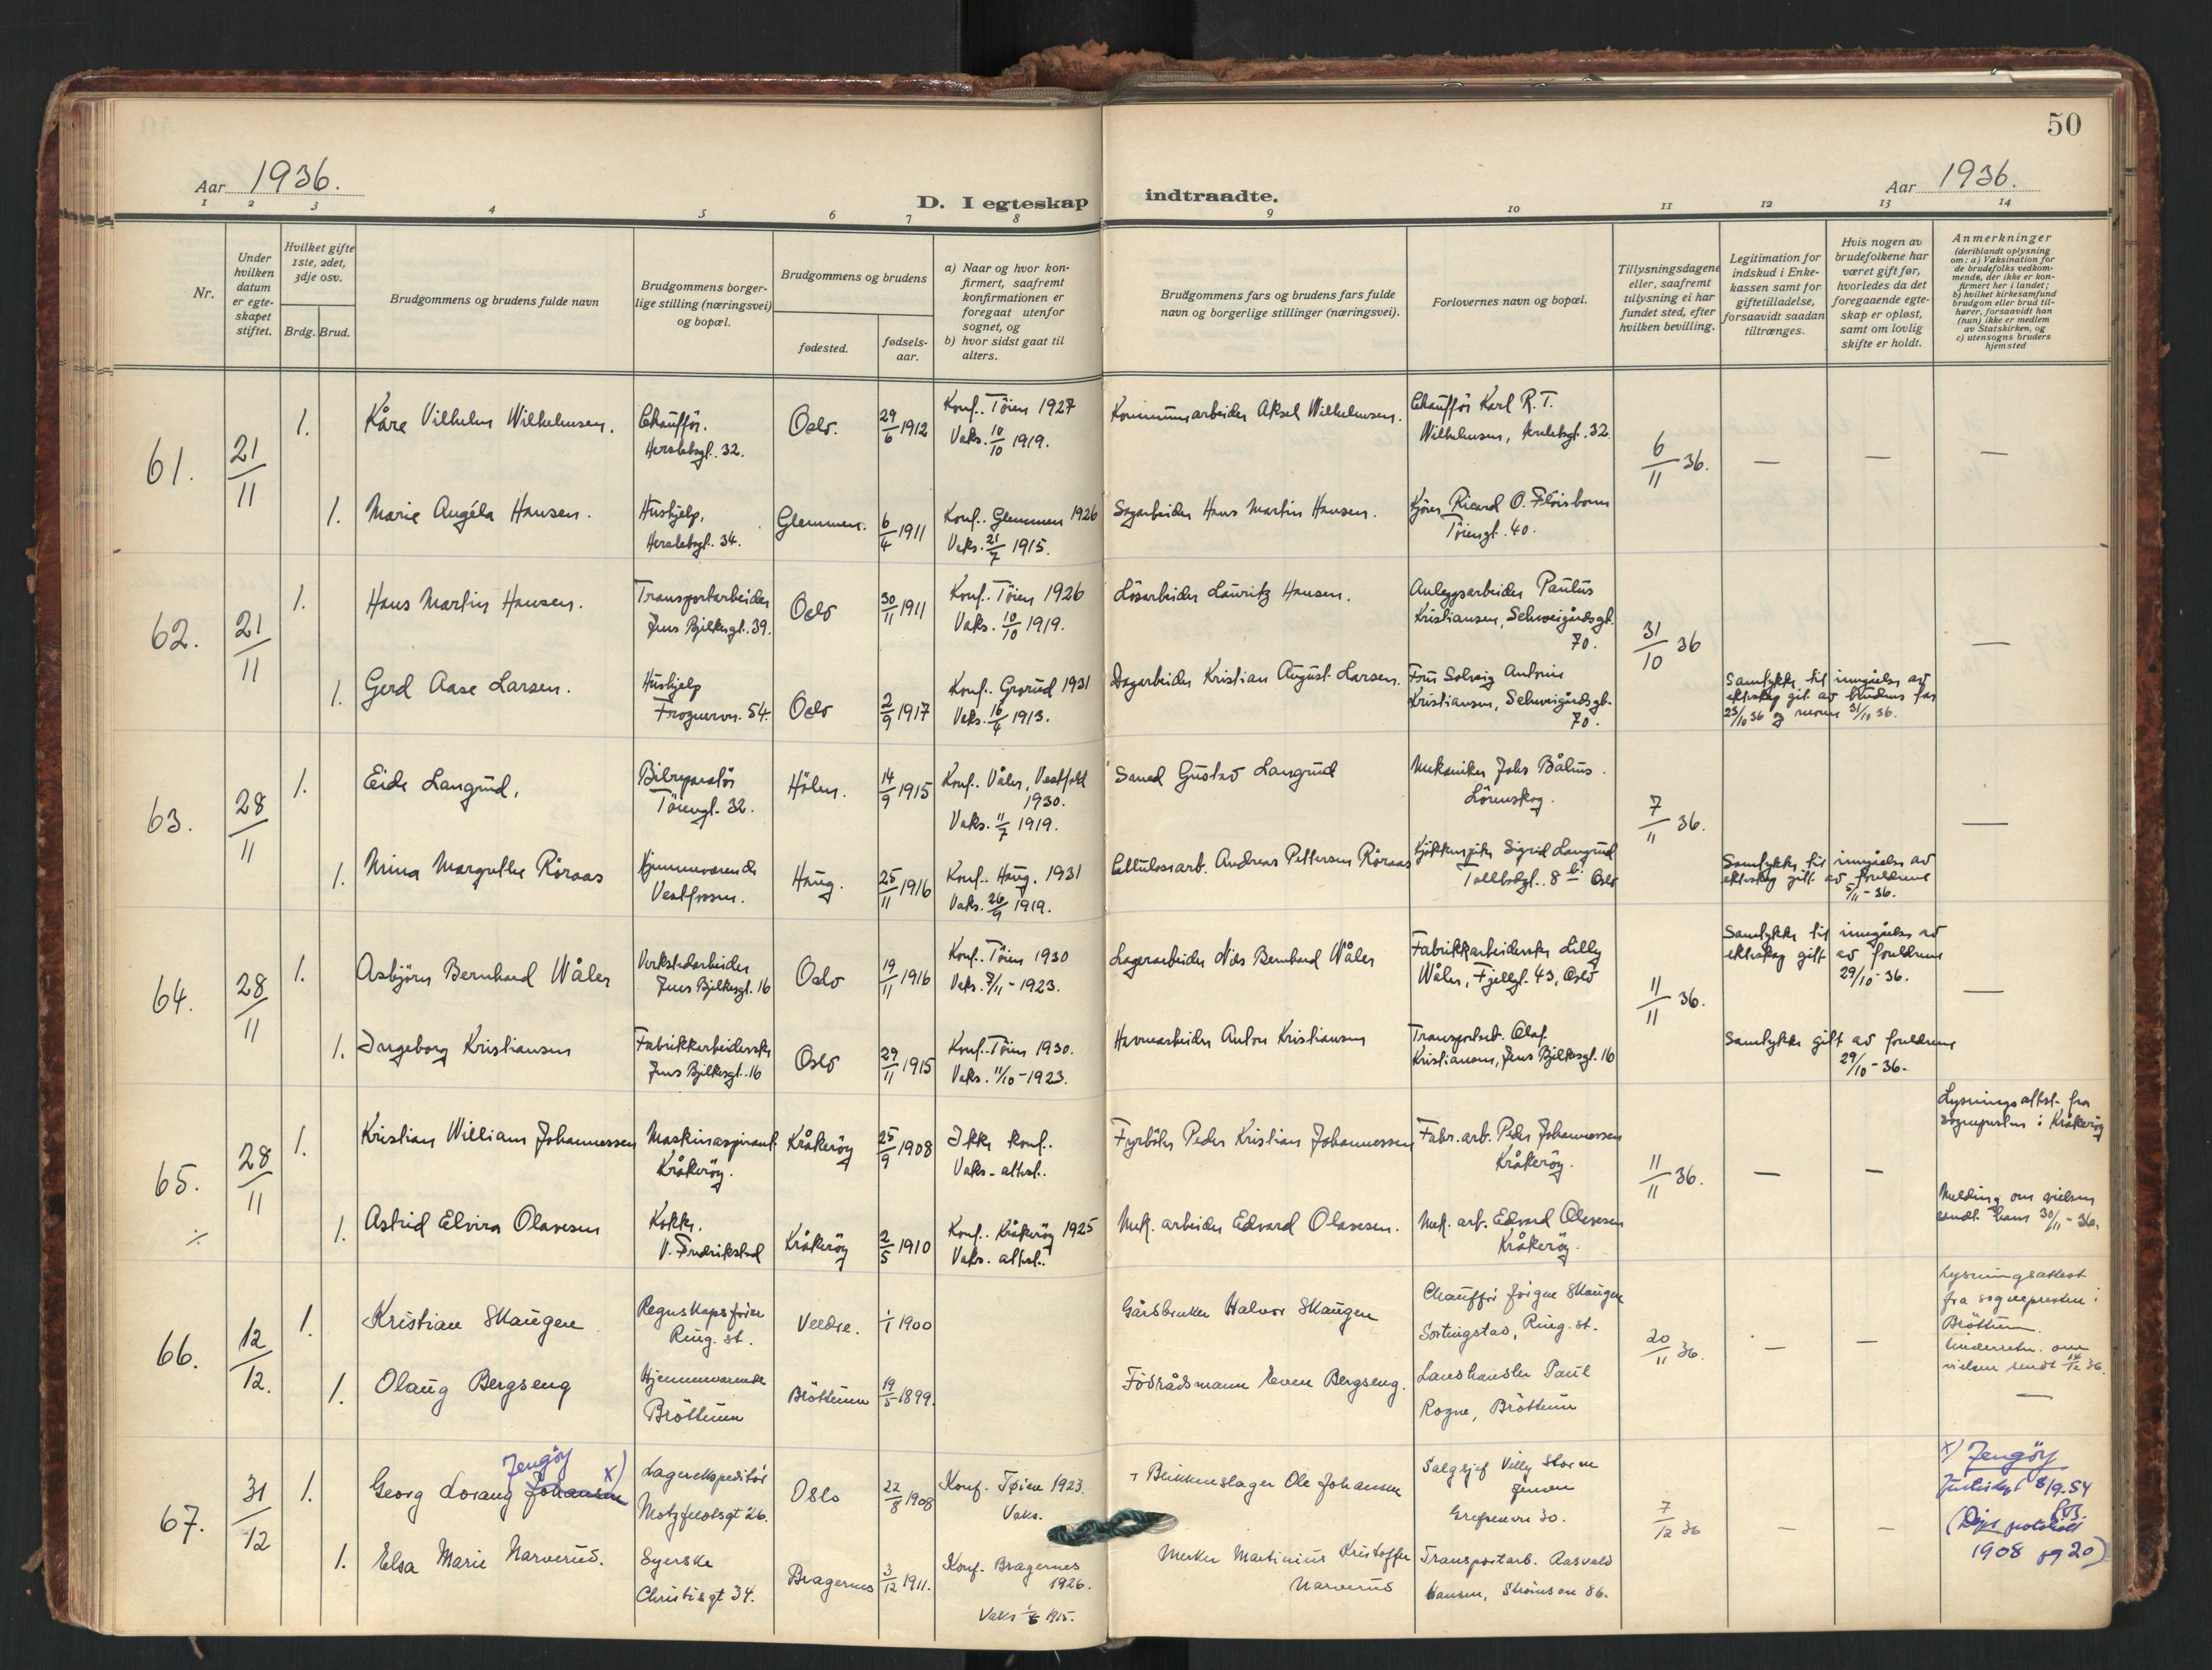 50
Aar 1936.
D. I egteskap indtraadte.
Aar 1936.
1 2 3 4 5 6 7 8 9 10 11 12 13 14
Nr.
Under hvilken datum er egteskapet stiftet.
Hvilket gifte 1ste, 2det, 3dje osv.
Brdg. Brud.
Brudgommens og brudens fulde navn
Brudgommens borgerlige stilling (næringsvei) og bopæl.
Brudgommens og brudens
fødested.
fødselsaar.
a) Naar og hvor konfirmert, saafremt konfirmationen er foregaat utenfor sognet, og
b) hvor sidst gaat til alters.
Brudgommens fars og brudens fars fulde navn og borgerlige stillinger (næringsvei).
Forlovernes navn og bopæl.
Tillysningsdagene eller, saafremt tillysning ei har fundet sted, efter hvilken bevilling.
Legitimation for indskud i Enkekassen samt for giftetilladelse, forsaavidt saadan tiltrænges.
Hvis nogen av brudefolkene har været gift før, hvorledes da det foregaaende egteskap er opløst, samt om lovlig skifte er holdt.
Anmerkninger
(deriblandt oplysning om: a) Vaksination for de brudefolks vedkommende, der ikke er konfirmert her i landet; b) hvilket kirkesamfund brudgom eller brud tilhører, forsaavidt han (hun) ikke er medlem av Statskirken, og c) utensogns bruders hjemsted
61. 21/11
1. Kåre Vilhelm Wilhelmsen. Chauffør. Herslebsgt. 32. Oslo. 29/6 1912 Konf. Tøien 1927 Vaks. 10/10 1919. Kommunearbeider Aksel Wilhelmsen. Chauffør Karl R. T. Wilhelmsen, Herslebsgt. 32. 6/11 36. — — —
1. Marie Angéla Hansen. Hushjelp, Herslebsgt. 34. Glemmen. 6/4 1911 Konf. Glemmen 1926 Vaks. 21/7 1915. Sagarbeider Hans Martin Hansen. Kjører Ricard O. Fløisbonn Tøiengt. 40.
62. 21/11
1. Hans Martin Hansen. Transportarbeider Jens Bjelkesgt. 39. Oslo 30/11 1911 Konf. Tøien 1926 Vaks. 10/10 1919. Løsarbeider Lauritz Hansen. Anleggsarbeider Paulus Kristiansen, Schweigårdsgt. 70. 31/10 36 —
1. Gerd Aase Larsen. Hushjelp Frognervn. 54. Oslo 2/9 1917 Konf. Grorud 1931 Vaks. 16/4 1913. Dagarbeider Kristian August Larsen. Fru Solveig Antonie Kristiansen, Schweigårdsgt. 70. Samtykke til inngåelse av ekteskap git av brudens far 25/10 36 og moren 31/10 36.
63. 28/11
1. Eide Langrud. Bilreparatør Tøiengt. 32. Hölen. 14/9 1915 Konf. Våler, Vestfold 1930. Vaks. 11/7 1919. Gustav Langrud Mekaniker Johs Lørenskog. 7/11 36. —
1. Nina Margrethe Röraas Hjemmeværende Vestfossen. Haug. 25/11 1916 Konf. Haug. 1931 Vaks. 26/9 1919. Cellulosearb. Andreas Pettersen Röraas Kjøkkenpike Sigrid Langrud Tollbodgt. 8 b Oslo Samtykke til inngåelse av ekteskap gitt av foreldrene 5/11 - 36.
64. 28/11
1. Asbjörn Bernhard Wåler Verkstedarbeider Jens Bjelkesgt. 16 Oslo 19/11 1916 Konf. Tøien 1930 Vaks. 7/11 - 1923. Lagerarbeider Nils Bernhard Wåler Fabrikkarbeiderske Lilly Wåler, Fjellgt. 43, Oslo 11/11 36. Samtykke til inngåelse av ekteskap gitt av foreldrene 29/10 - 36. —
1. Ingeborg Kristiansen Fabrikkarbeiderske Jens Bjelkesgt. 16 Oslo 29/11 1915 Konf. Tøien 1930. Vaks. 11/10 - 1923. Havnearbeider Anton Kristiansen Transportarb. Olaf Kristiansen, Jens Bjelkesgt. 16 Samtykke gitt av foreldrene 29/10 - 36.
65. 28/11
1. Kristian William Johannessen Maskinaspirant Kråkeröy. Kråkeröy 25/9 1908 Ikke konf. Vaks. attest. Fyrböter Peder Kristian Johannessen Fabr. arb. Peder Johannessen Kråkeröy. 11/11 36. — — Lysningsattest fra sognepresten i Kråkeröy
1. Astrid Elvira Olavesen Kokke. V. Fredrikstad Kråkeröy 2/5 1910 Konf. Kråkeröy 1925 Vaks. attest. Mek. arbeider Edvard Olavesen. Mek. arb. Edvard Olavesen Kråkeröy. Melding om vielsen sendt hans 30/11 - 36.
66. 12/12.
1. Kristian Skaugen Regnskapsfører Ring. st. Veldre. 1/1 1900 Gårdbruker Halvor Skaugen Chauffør Jørgen Skaugen Ring. st. 20/11 36. — — Lysningsattest fra sognepresten i Brøttum. Underretn. om vielsen sendt 14/12 36.
1. Olaug Bergseng Hjemmeværende Brøttum Brøttum 19/5 1899. Födrådsmann Even Bergseng. Landhandler Paul Rogne, Brøttum —
67. 31/12
1. Georg Lorang Johansen Jengöy x) Lagerekspeditør Motzfeldtsgt 26. Oslo 22/8 1908 Konf. Tøien 1923. Vaks. Blikkenslager Ole Johansen Salgsjef Villy Storm Grefsenvn 30. 7/12 36 — — x) Jengöy Justisdept 8/9.54 (Døps protokoll 1908 pg 20)
1. Elsa Marie Narverud. Syerske Christisgt 34. Bragernes 3/12 1911. Konf. Bragernes 1926. Vaks 1915. Merker Martinius Kristoffer Narverud Transportarb. Aasvald Hansen, 86.